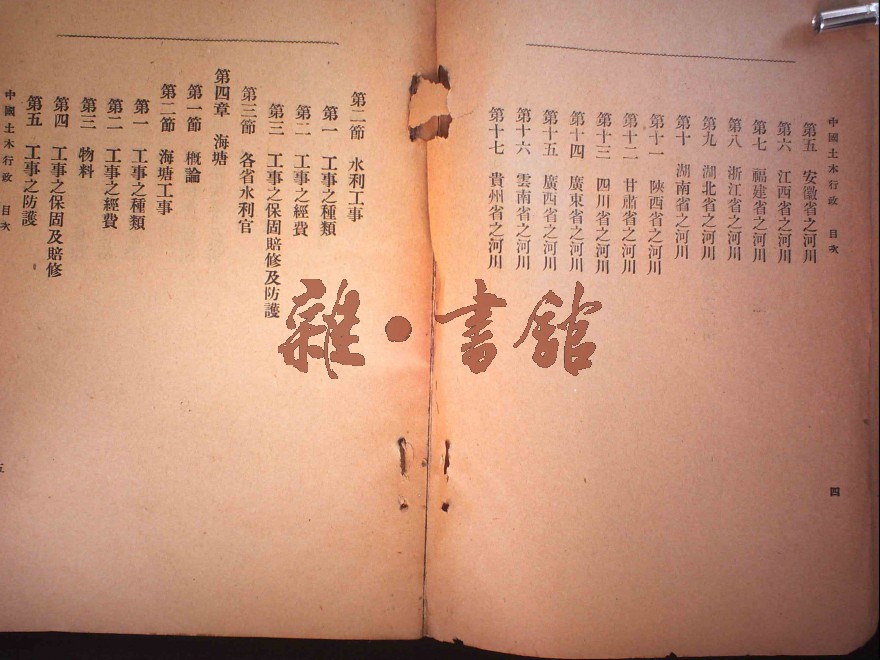 中國土木行政 目次
第五 安徽省之河川
第六 江西省之河川
第七 福建省之河川
第八 浙江省之河川
第九 湖北省之河川
第十 湖南省之河川
第十一 陝西省之河川
第十二 甘肅省之河川
第十三 四川省之河川
第十四 廣東省之河川
第十五 廣西省之河川
第十六 雲南省之河川
第十七 貴州省之河川
四
第二節 水利工事
第一 工事之種類
第二 工事之經費
第三 工事之保固賠修及防護
第三節 各省水利官
第四章 海塘
第一節 概論
第二節 海塘工事
第一 工事之種類
第二 工事之經費
第三 物料
第四 工事之保固及賠修
第五 工事之防護
中國土木行政 目次
五
雜·書館